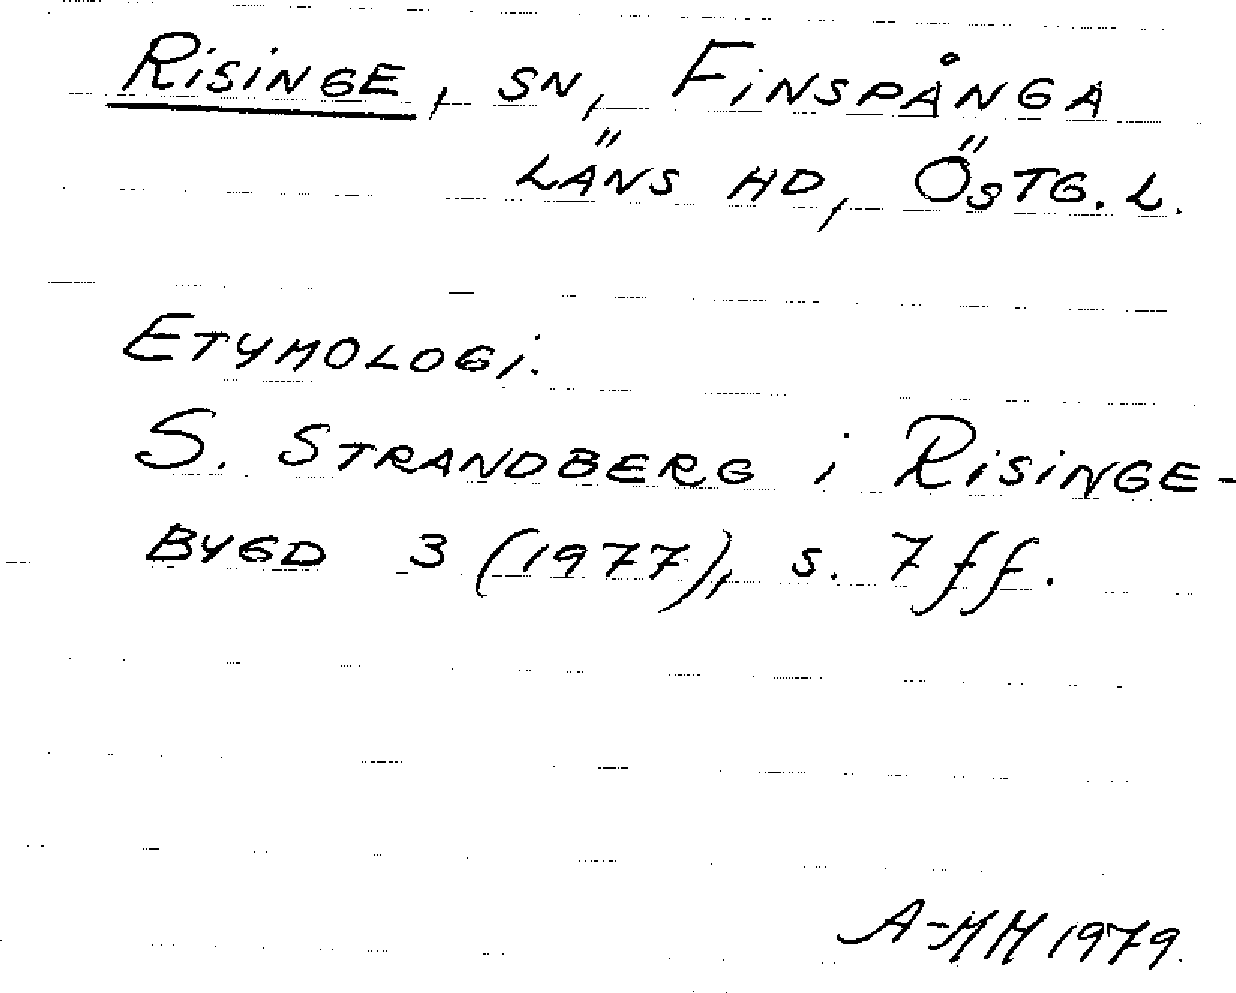 RISINGE, SN, FINSPÅNGA
LÄNS HD, ÖSTG. L.
ETYMOLOGI.
S. STRANDBERG i RISINGE-
BYGD 3 (1977), S. 7 ff.
A-MM 1979.